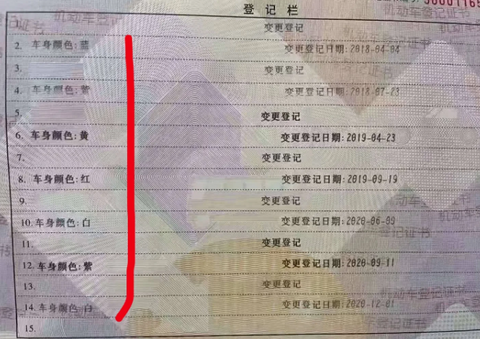 登记栏
变更登记
2. 车身颜色:蓝 变更登记日期:2018-04-04
3. 变更登记
4. 车身颜色:紫 变更登记日期:2018-07-23
5. 变更登记
6. 车身颜色:黄 变更登记日期:2019-04-23
7. 变更登记
8. 车身颜色:红 变更登记日期:2019-09-19
9. 变更登记
10. 车身颜色:白 变更登记日期:2020-06-09
11. 变更登记
12. 车身颜色:紫 变更登记日期:2020-09-11
13. 变更登记
14. 车身颜色:白 变更登记日期:2020-12-01
15.
机动车登记证书